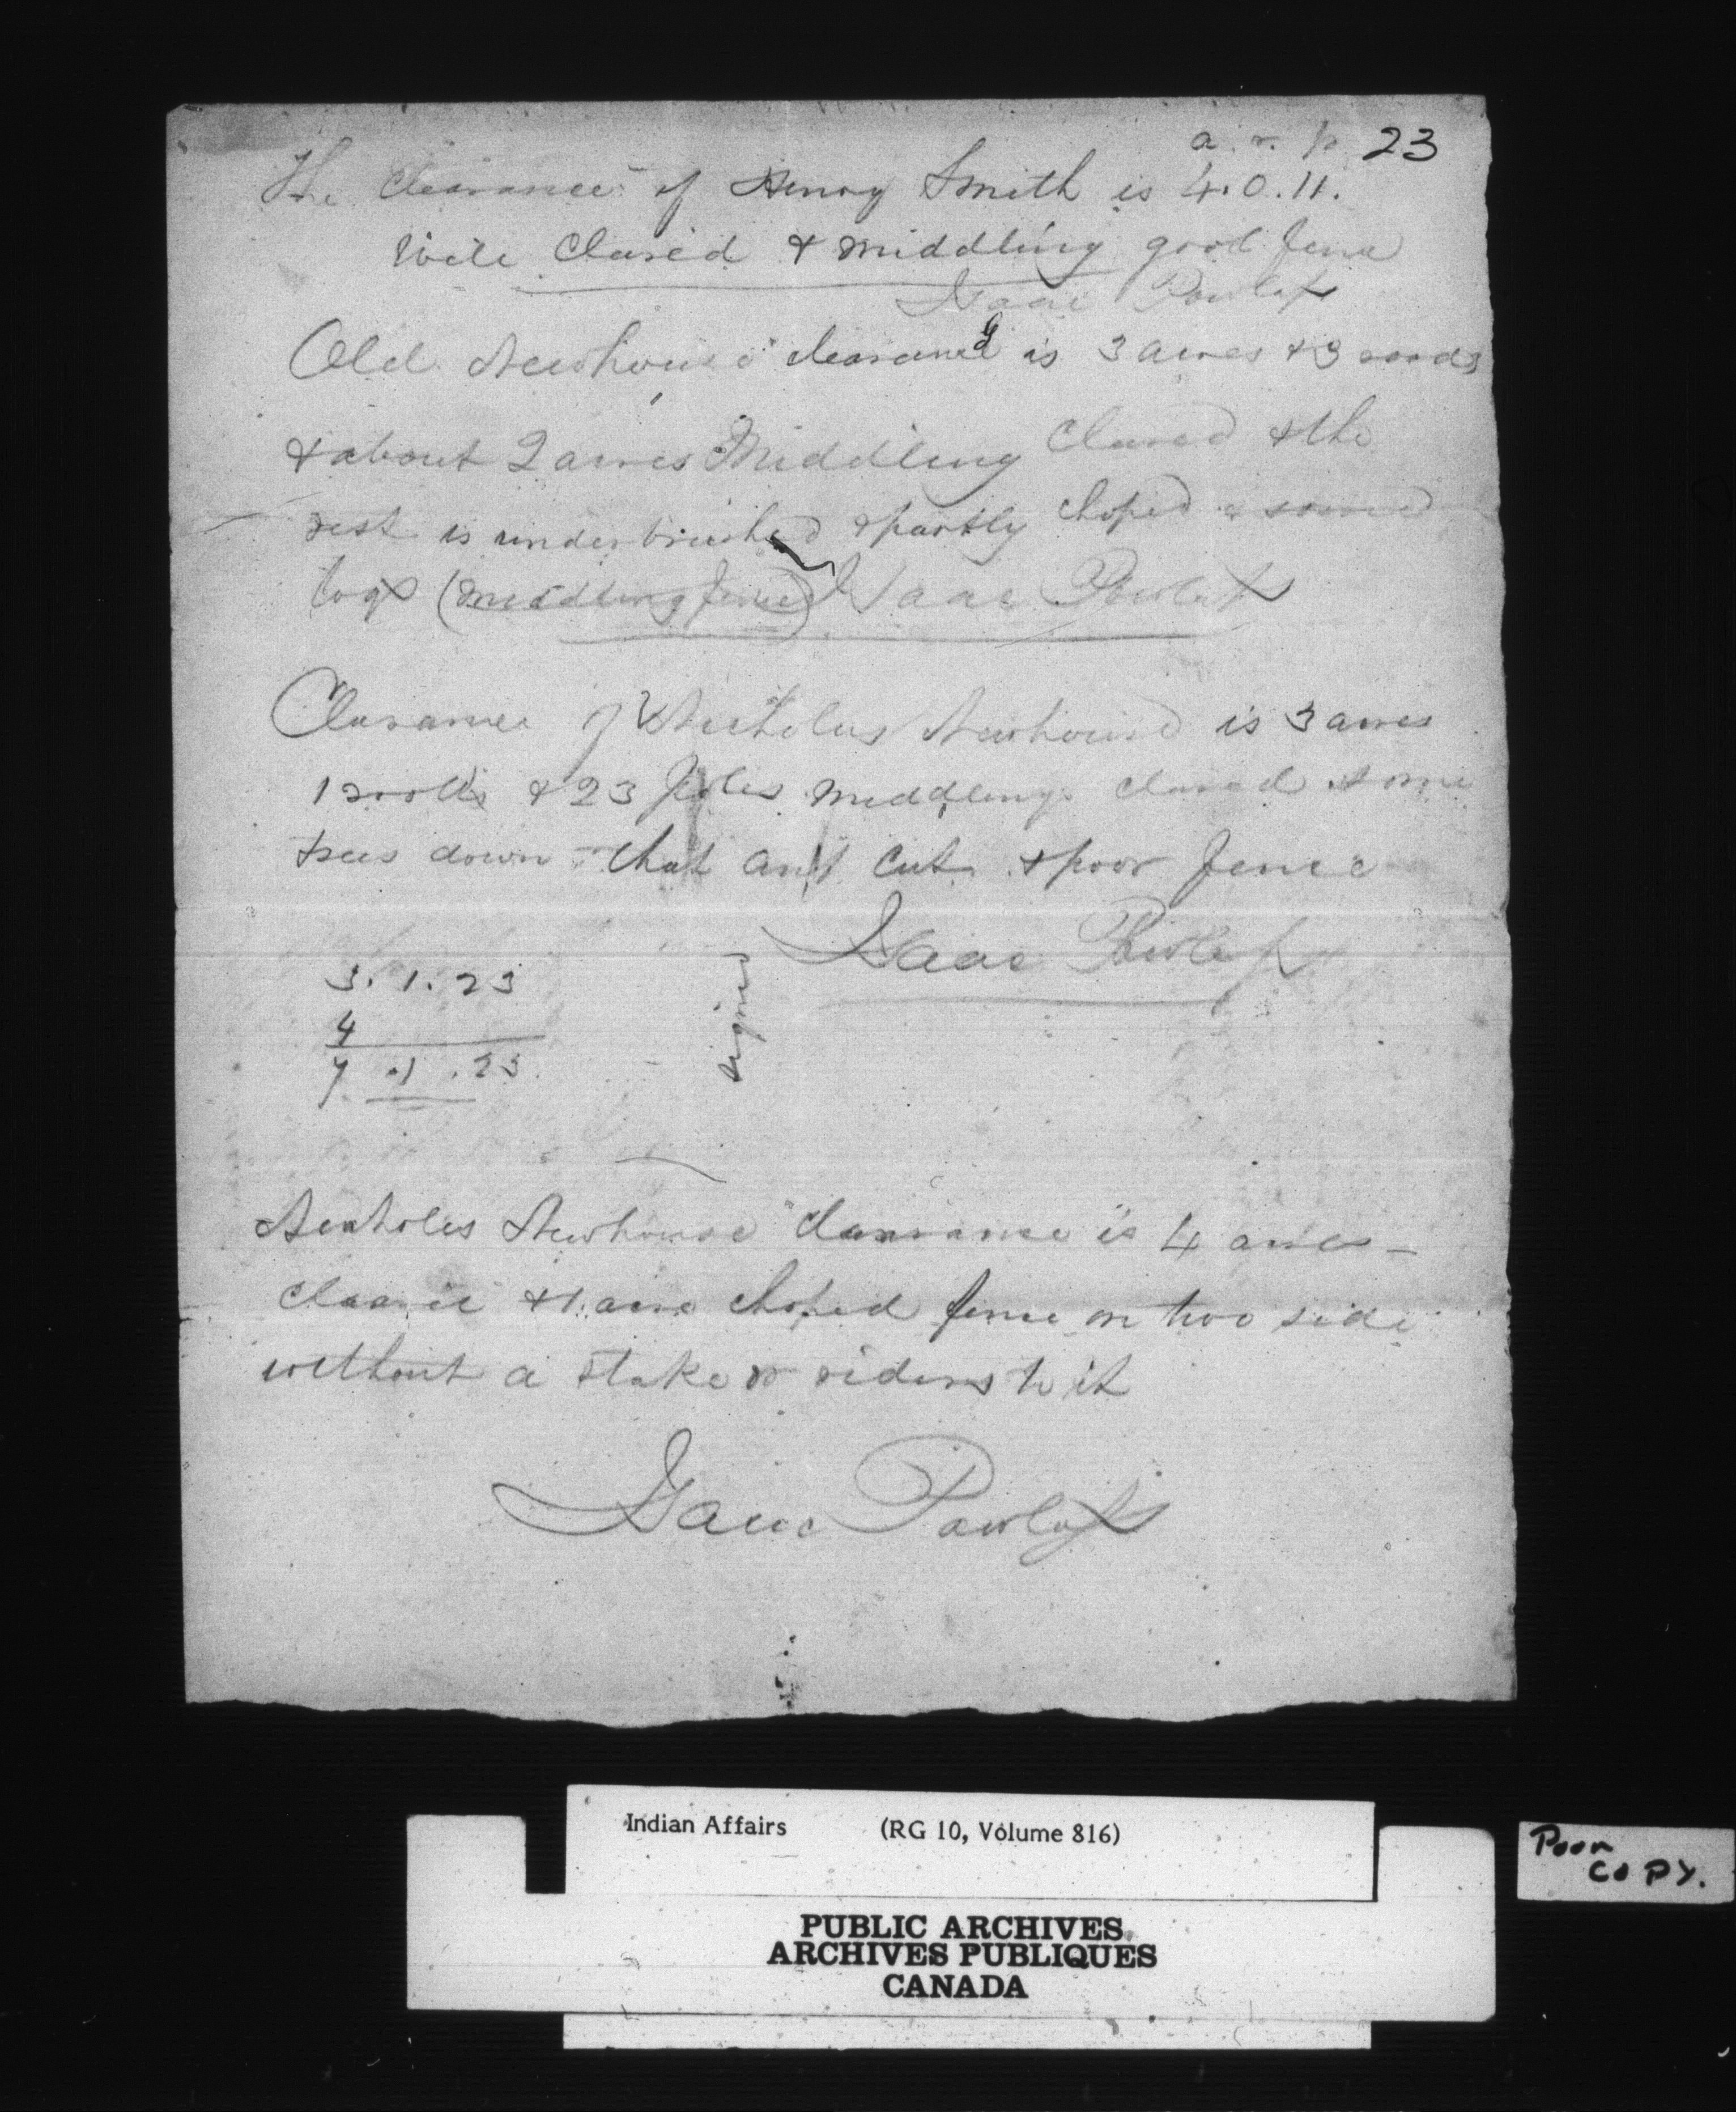 a. r. p. 23
The Clearance of Henry Smith is 4.0.11.
Well Cleared & middling good fence
Isaac Powles
Old Newhouse clearance is 3 acres & 3 roods
& about 2 acres Middling Cleared & the
rest is underbrushed & partly choped & some
logs (middling fence) Isaac Powles
Clearance of Nicholas Newhouse is 3 acres
1 rood & 23 poles middling cleared some
trees down that ant cut & poor fence
Isaac Powles
signed
3. 1. 23
4
7 .1 .23
Newhouse clearance is 4 acres
& 1 acre choped fence on two side
without a stake or riders to it
Isaac Powles
Indian Affairs (RG 10, Volume 816)
PUBLIC ARCHIVES
ARCHIVES PUBLIQUES
CANADA
Poor
COPY.